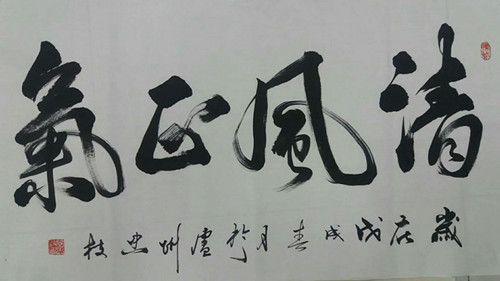 清風正氣
歲在戊戌春月於廬州忠枝